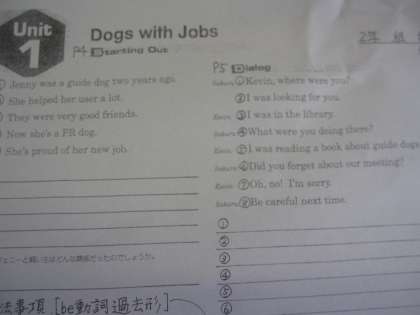 Unit 1
Dogs with Jobs
P4 Starting Out
① Jenny was a guide dog two years ago.
She helped her user a lot.
They were very good friends.
Now she's a PR dog.
She's proud of her new job.
ジェニーと飼い主はどんな関係だったのでしょうか。
法事項 [be動詞過去形]
2年 組
P5 Dialog
Sakura ①Kevin, where were you?
②I was looking for you.
Kevin ③I was in the library.
Sakura ④What were you doing there?
Kevin ⑤I was reading a book about guide dogs
Sakura ⑥Did you forget about our meeting?
Kevin ⑦Oh, no! I'm sorry.
Sakura ⑧Be careful next time.
①
②
③
④
⑤
⑥